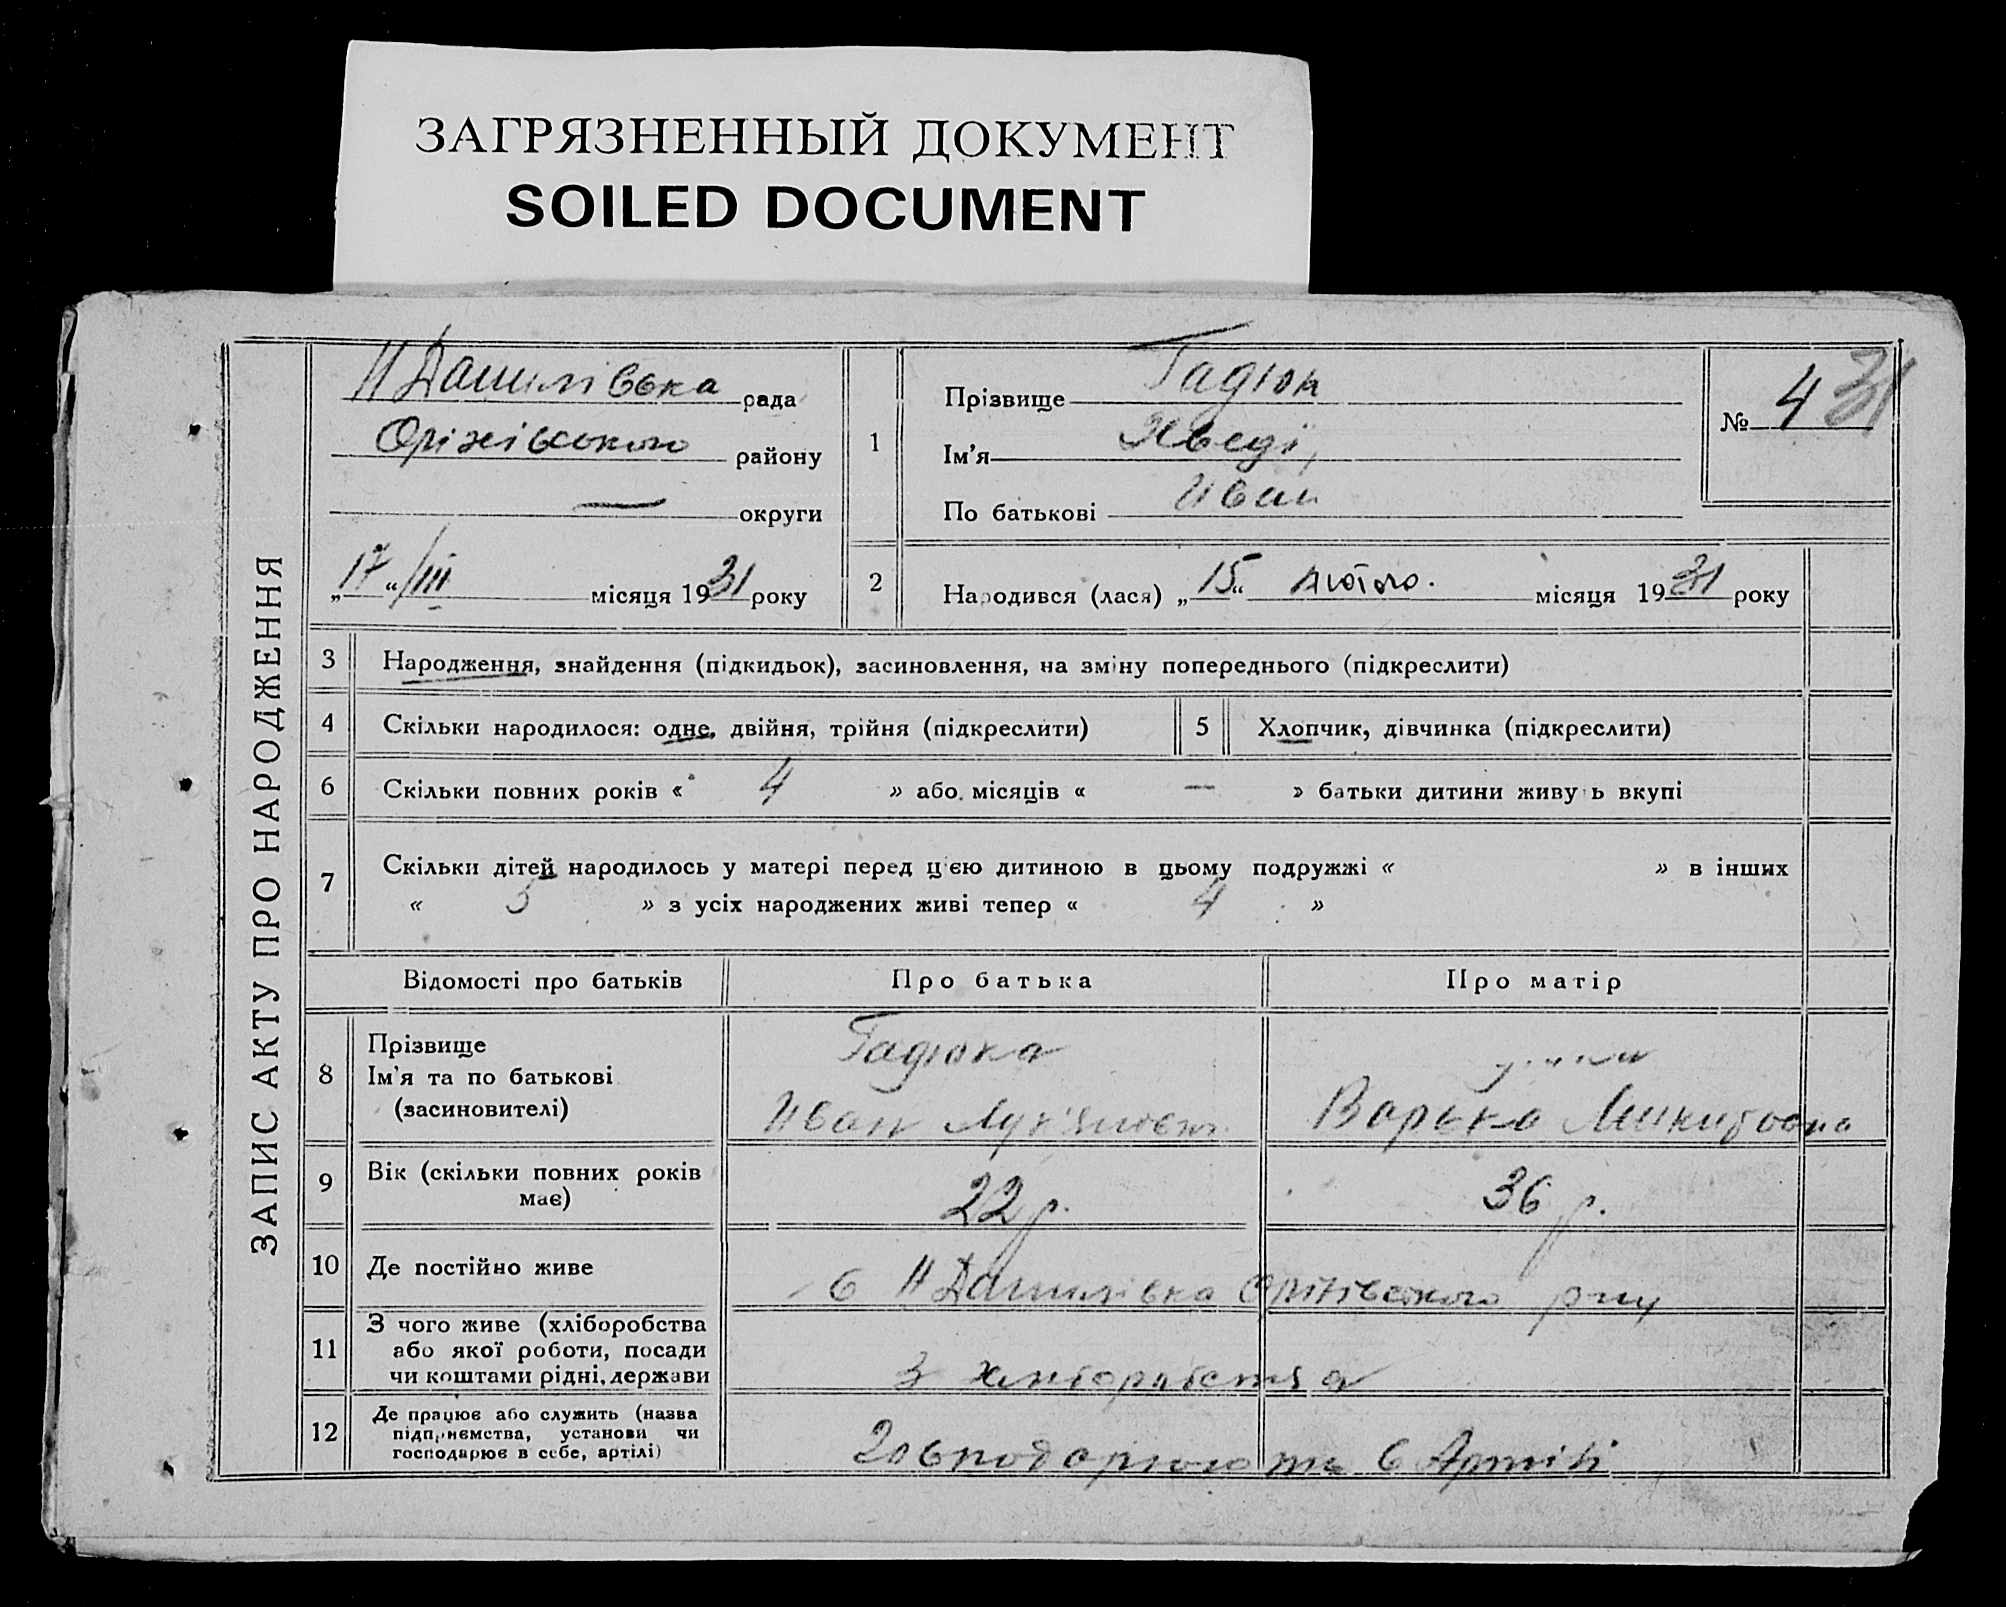 ЗАГРЯЗНЕННЫЙ ДОКУМЕНТ
SOILED DOCUMENT
ЗАПИС АКТУ ПРО НАРОДЖЕННЯ
Н Данилівська рада
Оріхівського району
— округи
„17“/III місяця 1931 року
1
Прізвище Гадюк
Ім'я
По батькові Иван
№ 4 31
2
Народився (лася) „15“ лютого. місяця 1931 року
3 Народження, знайдення (підкидьок), засиновлення, на зміну попереднього (підкреслити)
4 Скільки народилося: одне, двійня, трійня (підкреслити) 5 Хлопчик, дівчинка (підкреслити)
6 Скільки повних років « 4 » або місяців « — » батьки дитини живуть вкупі
7 Скільки дітей народилось у матері перед цією дитиною в цьому подружжі « » в інших
« 5 » з усіх народжених живі тепер « 4 »
Відомості про батьків Про батька Про матір
8 Прізвище
Ім'я та по батькові
(засиновителі)
Гадюка
Иван
Варька Микитовна
9 Вік (скільки повних років
має)
22 р. 36 р.
10 Де постійно живе
с Н Данилівка Оріхівського р-ну
11 З чого живе (хліборобства
або якої роботи, посади
чи коштами рідні, держави
З хліборобства
12 Де працює або служить (назва
підприємства, установи чи
господарює в себе, артілі)
в Артілі